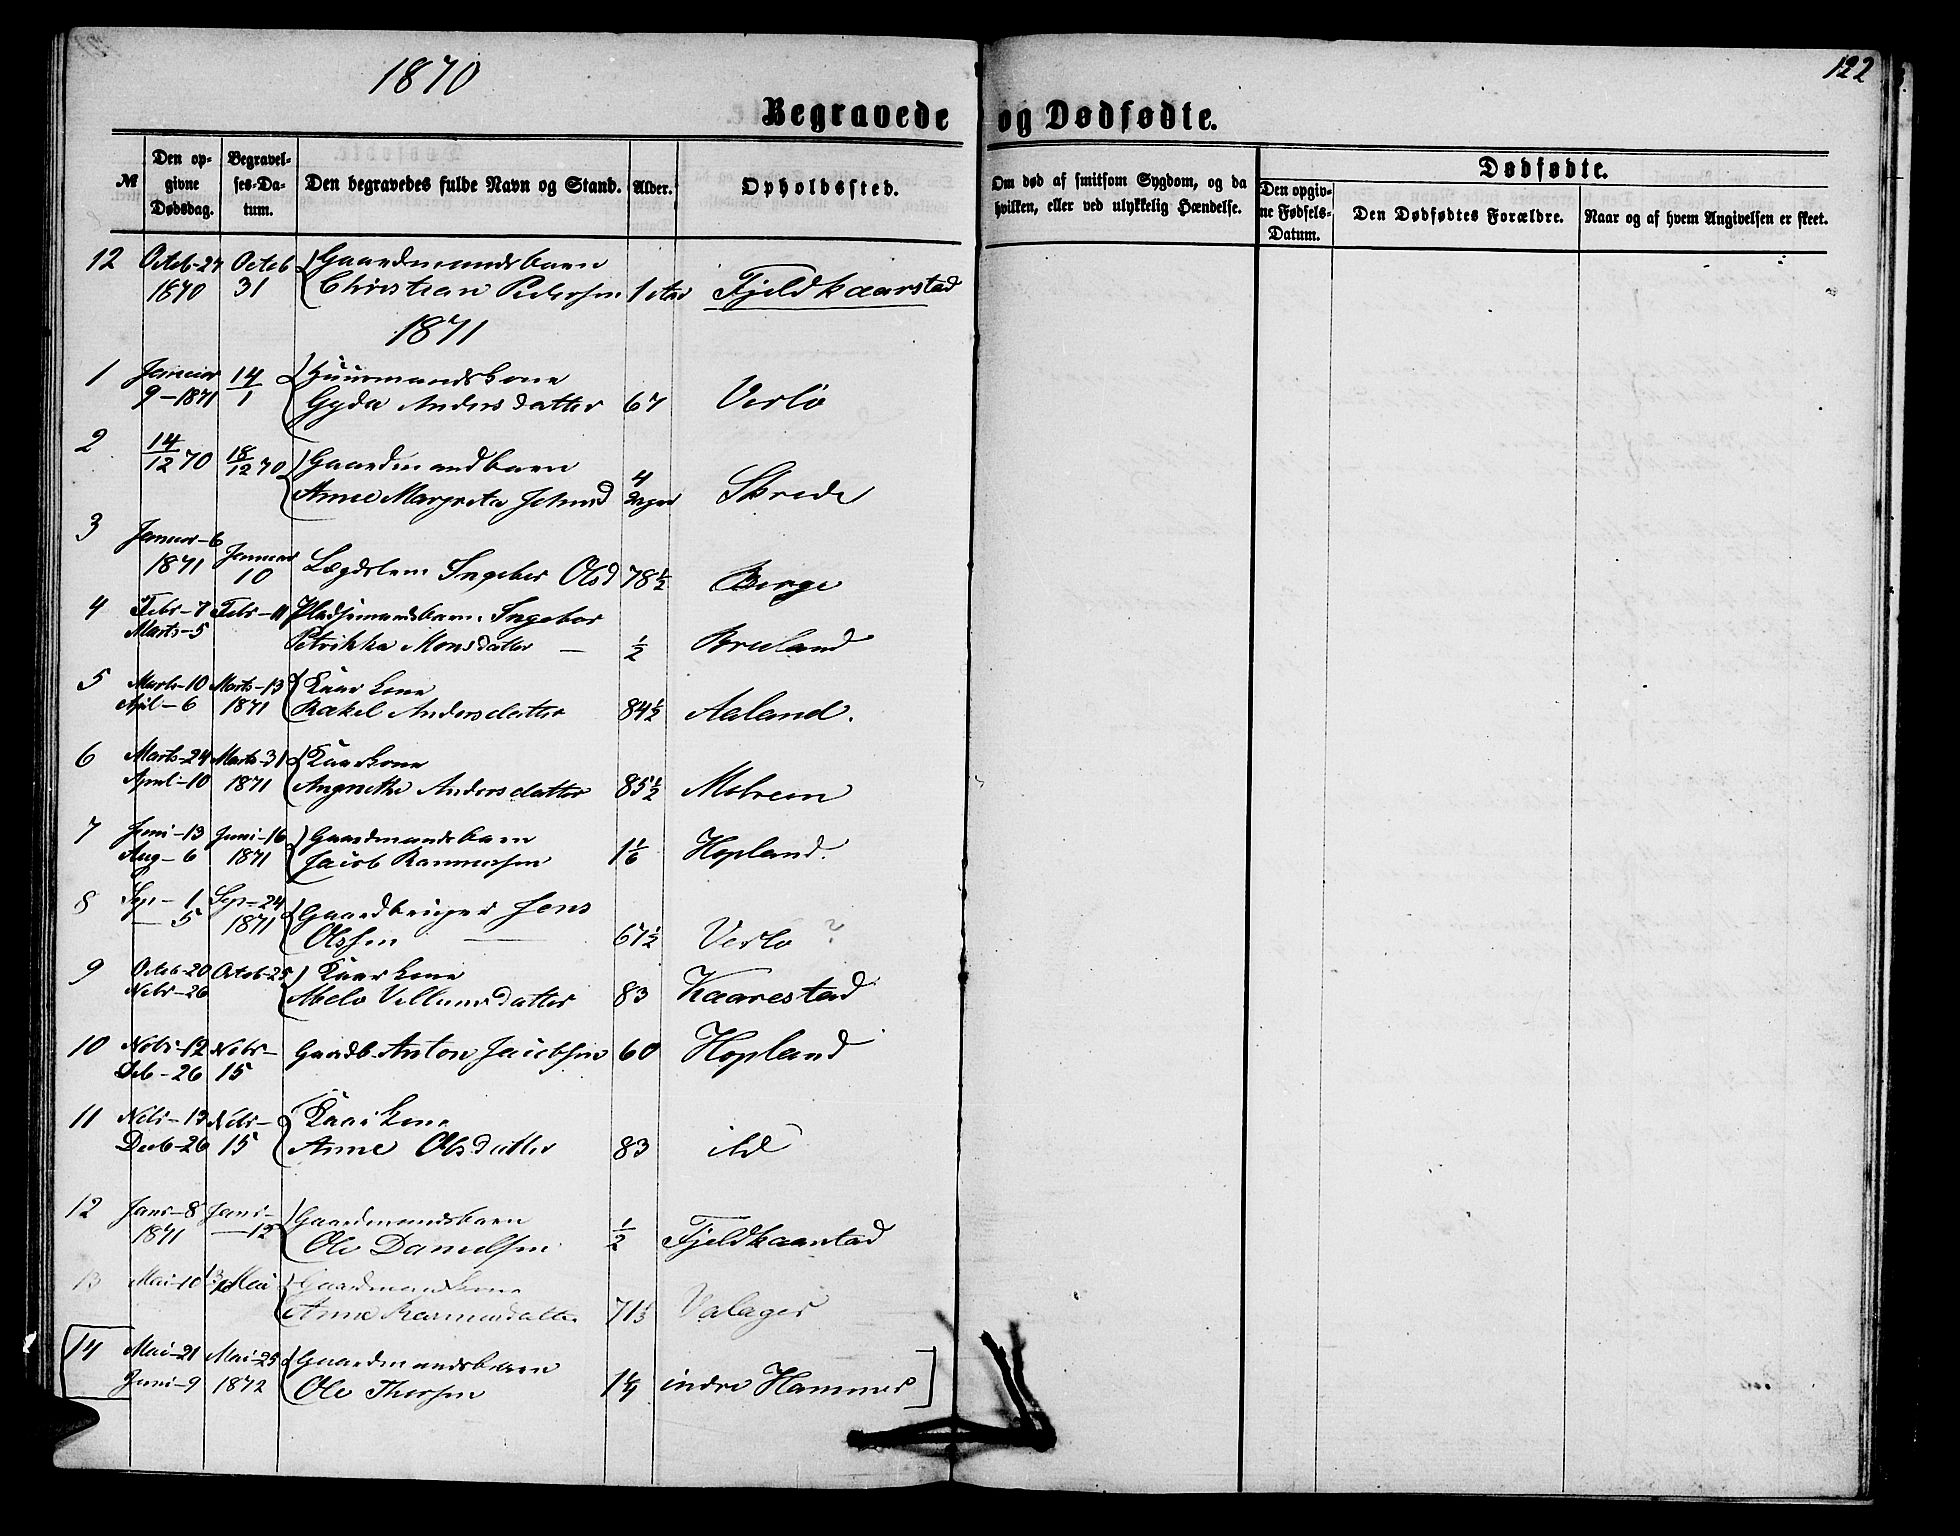 1870
122
Begravede og Dødfødte.
№
Den opgivne Dødsdag.
Begravelses-Datum.
Den begravedes fulde Navn og Stand.
Alder.
Opholdssted.
Om død af smitsom Sygdom, og da hvilken, eller ved ulykkelig Hændelse.
Dødfødte.
Den opgivne Fødsels-Datum.
Den Dødfødtes Forældre.
Naar og af hvem Angivelsen er skeet.
12 Octob-27 Octob Gaardmandsbarn
1870 31 Christian Pedersen 1 Aar Fjeldkaarstad
1871
1 Januar 14 Huusmandskone
9-1871 1 Gyda Andersdatter 67 Verlo
2 14/12 70 18/12 70 Gaardmandbarn
Anne Margreta Johnsd 4 Dager Skrede
3 Januar-6
1871 Januar 10 Lægdslem Ingebor Olsd 78½ Berge
4 Febr-7 Febr-11 Pladsemandsbarn Ingebor
Marts-5 Petrikka Monsdatter — ½ Breland
5 Marts-10 Marts-13 Kaarkone
April-6 1871 Rakel Andersdatter 84½ Aaland.
6 Marts-24 Marts-31 Kaarkone
April-10 1871 Angnethe Andersdatter 85½ Melheim
7 Juni-13 Juni-16 Gaardmandsbarn
Aug-6 1871 Jacob Rasmussen 1⅙ Hopland.
8 Sep-1 Sep-24 Gaardbruger Jens
— 5 1871 Olssen — 67½ Verlo ?
9 Octob-20 Octob-25 Kaarkone
Nobr-26 Villumsdatter 83 Kaarestad
10 Nobr-12 Nobr- Gaardb. Anton Jacobsen 60 Hopland
Deb-26 15
11 Nobr-13 Nobr- Kaarkone
Decb-26 15 Anne Olsdatter 83
12 Janr-8 Janr- Gaardmandsbarn
1871 —12 Ole Danielsen ½ Fjeldkaarstad
13 Mai-10 13 Mai Gaardmandskone
Anne Rasmusdatter 71⅓ Valager
14 Mai-21 Mai-25 Gaardmandsbarn
Juni-9 1872 Ole Thorsen indre Hammer